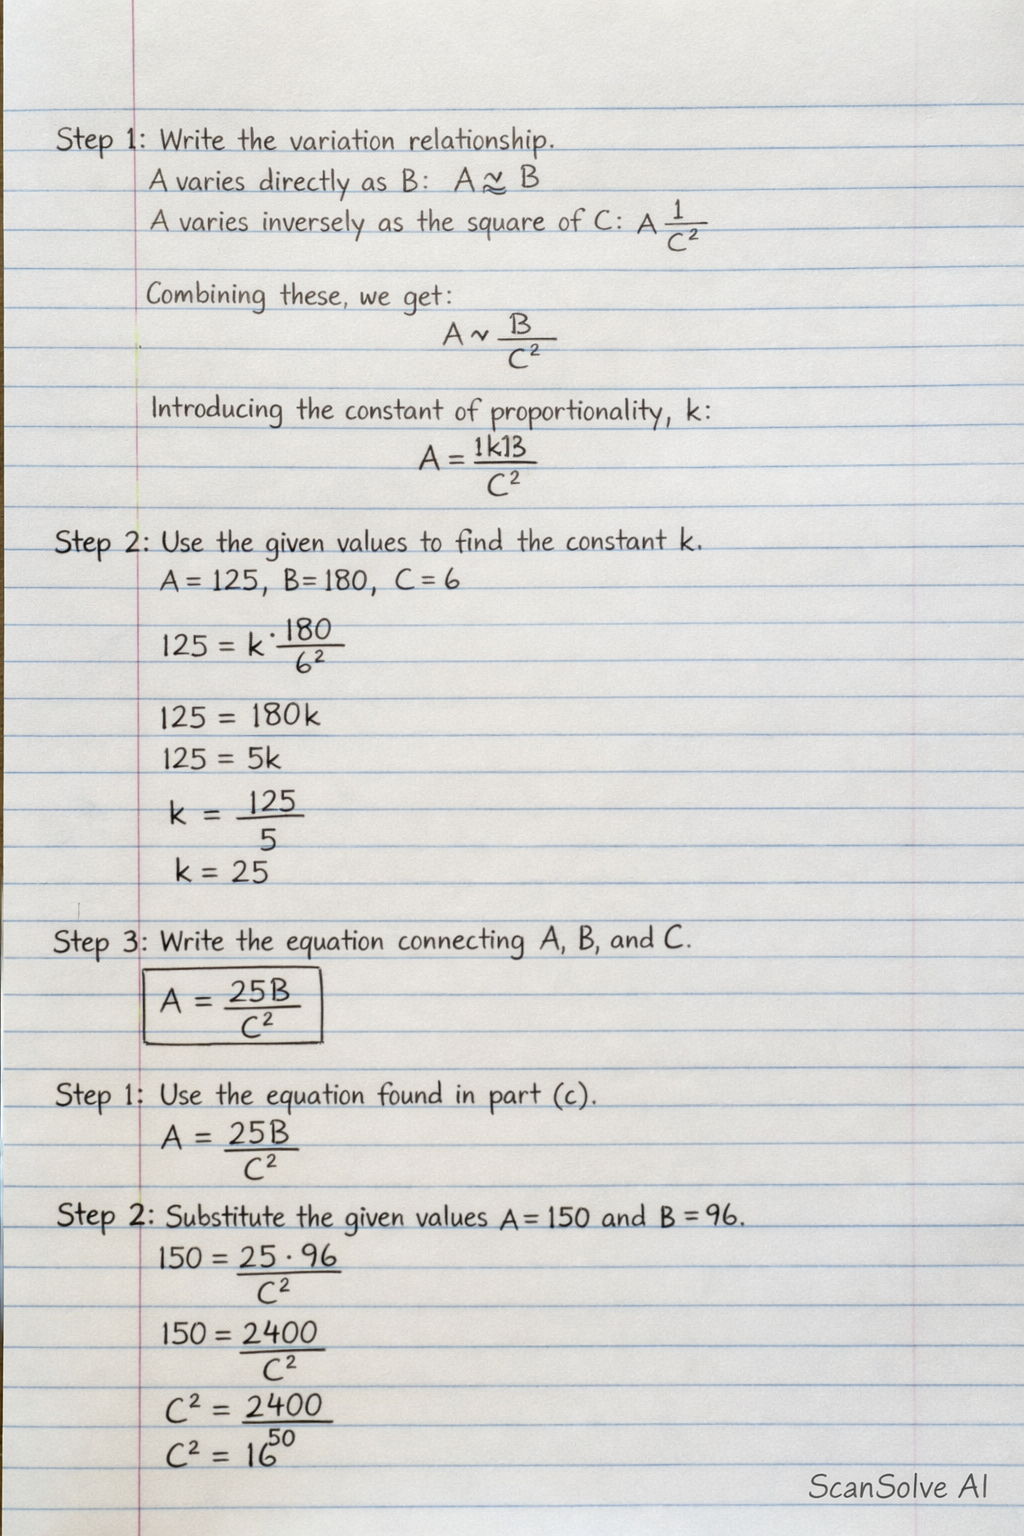 Step 1: Write the variation relationship.
A varies directly as B: A ≈ B
A varies inversely as the square of C: A 1/C²
Combining these, we get:
A ~ B/C²
Introducing the constant of proportionality, k:
A = 1k13/C²
Step 2: Use the given values to find the constant k.
A = 125, B = 180, C = 6
125 = k · 180/6²
125 = 180k
125 = 5k
k = 125/5
k = 25
Step 3: Write the equation connecting A, B, and C.
A = 25B/C²
Step 1: Use the equation found in part (c).
A = 25B/C²
Step 2: Substitute the given values A = 150 and B = 96.
150 = 25 · 96/C²
150 = 2400/C²
C² = 2400/50
C² = 16
ScanSolve AI